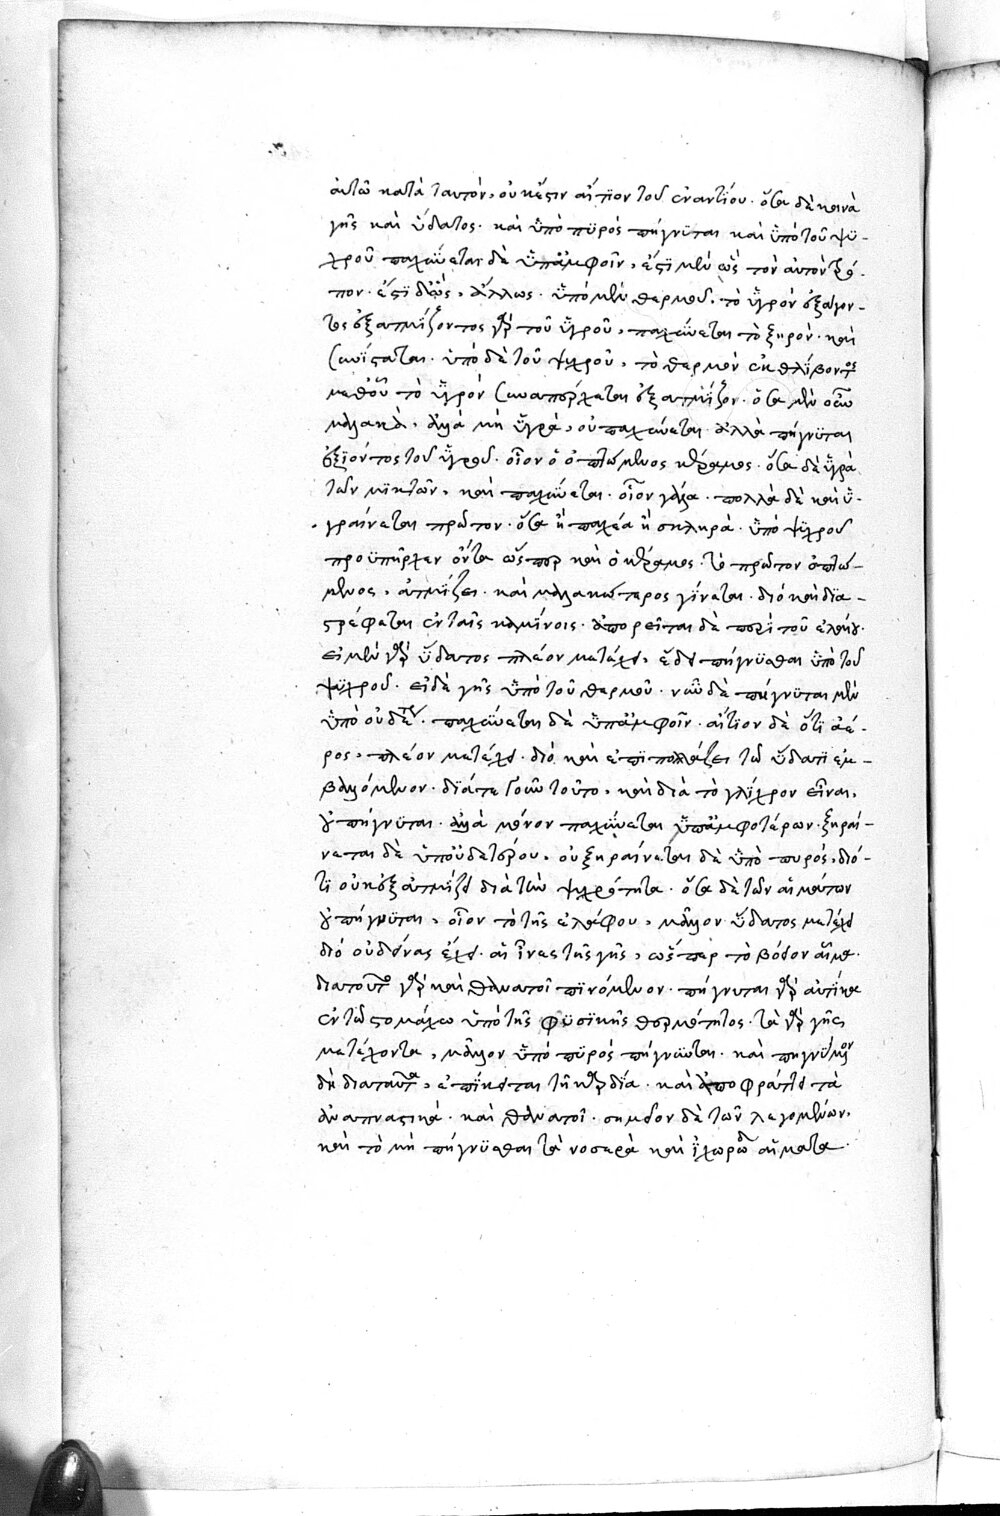 αὐτῶ κατὰ ταυτὸν, οὐκ ἔστιν αἴτιον τοῦ ἐναντίου. ὅσα δὲ κοινὰ
γῆς καὶ ὕδατος. καὶ ὑπὸ πυρὸς πήγνυται καὶ ὑπὸ τοῦ ψυ-
χροῦ παχύνεται δὲ ὑπ' ἀμφοῖν, ἔστι μὲν ὡς τὸν αὐτὸν τρό-
πον. ἔστι δ' ὡς, ἄλλως. ὑπὸ μὲν θερμοῦ, τὸ ὑγρὸν ἐξάγον-
τος ἐξατμίζοντος γὰρ τοῦ ὑγροῦ, παχύνεται τὸ ξηρὸν. καὶ
συνίσταται. ὑπὸ δὲ τοῦ ψυχροῦ, τὸ θερμὸν ἐκθλίβοντος
μεθ' οὗ τὸ ὑγρὸν συναπέρχεται ἐξατμίζον. ὅσα μὲν οὖν
μαλακὰ, ἀλλὰ μὴ ὑγρὰ, οὐ παχύνεται. ἀλλὰ πήγνυται
ἐξιόντος τοῦ ὑγροῦ. οἷον ὁ ὀπτώμενος κέραμος. ὅσα δὲ ὑγρὰ
τῶν μικτῶν, καὶ παχύνεται. οἷον γάλα. πολλὰ δὲ καὶ ὑ-
γραίνεται πρῶτον. ὅσα ἢ παχέα ἢ σκληρὰ. ὑπὸ ψυχροῦ
προϋπῆρχεν ὄντα ὥσπερ καὶ ὁ κέραμος. τὸ πρῶτον ὀπτώ-
μενος, ἀτμίζει. καὶ μαλακώτερος γίνεται. διὸ καὶ δια-
στρέφεται ἐν ταῖς καμίνοις. ἀπορεῖται δὲ περὶ τοῦ ἐλαίου.
εἰ μὲν γὰρ ὕδατος πλέον μετέχει, ἔδει πήγνυσθαι ὑπὸ τοῦ
ψυχροῦ. εἰ δὲ γῆς ὑπὸ τοῦ θερμοῦ. νῦν δὲ πήγνυται μὲν
ὑπὸ οὐδετέρου. παχύνεται δὲ ὑπ' ἀμφοῖν. αἴτιον δὲ ὅτι ἀέ-
ρος, πλέον μετέχει. διὸ καὶ ἐπιπολάζει τῶ ὕδατι ἐμ-
βαλόμενον. διά τε γοῦν τοῦτο, καὶ διὰ τὸ γλίχρον εἶναι,
οὐ πήγνυται. ἀλλὰ μόνον παχύνεται ὑπ' ἀμφοτέρων. ξηραί-
νεται δὲ ὑπ' οὐδετέρου. οὐ ξηραίνεται δὲ ὑπὸ πυρὸς, διό-
τι οὐκ ἐξατμίζει διὰ τὴν ψυχρότητα. ὅσα δὲ τῶν αἱμάτων
οὐ πήγνυται, οἷον τὸ τῆς ἐλάφου, μᾶλλον ὕδατος μετέχει
διὸ οὐδ' ἶνας ἔχει. αἱ ἶνες τῆς γῆς, ὥσπερ τὸ βόειον αἷμα.
διὰ τοῦτο γὰρ καὶ θανατοῖ πινόμενον. πήγνυται γὰρ αὐτίκα
ἐν τῶ στομάχω ὑπὸ τῆς φυσικῆς θερμότητος. τὰ γὰρ γῆς
μετέχοντα, μᾶλλον ὑπὸ πυρὸς πήγνυται. καὶ πηγνύμενον
δὴ διὰ ταῦτα, ἐπίκειται τῆ καρδία. καὶ ἀποφράττει τὰ
ἀναπνευστικὰ. καὶ θανατοῖ. σημεῖον δὲ τῶν λεγομένων,
καὶ τὸ μὴ πήγνυσθαι τὰ νοσερὰ καὶ ἰχωρώδη αἵματα.